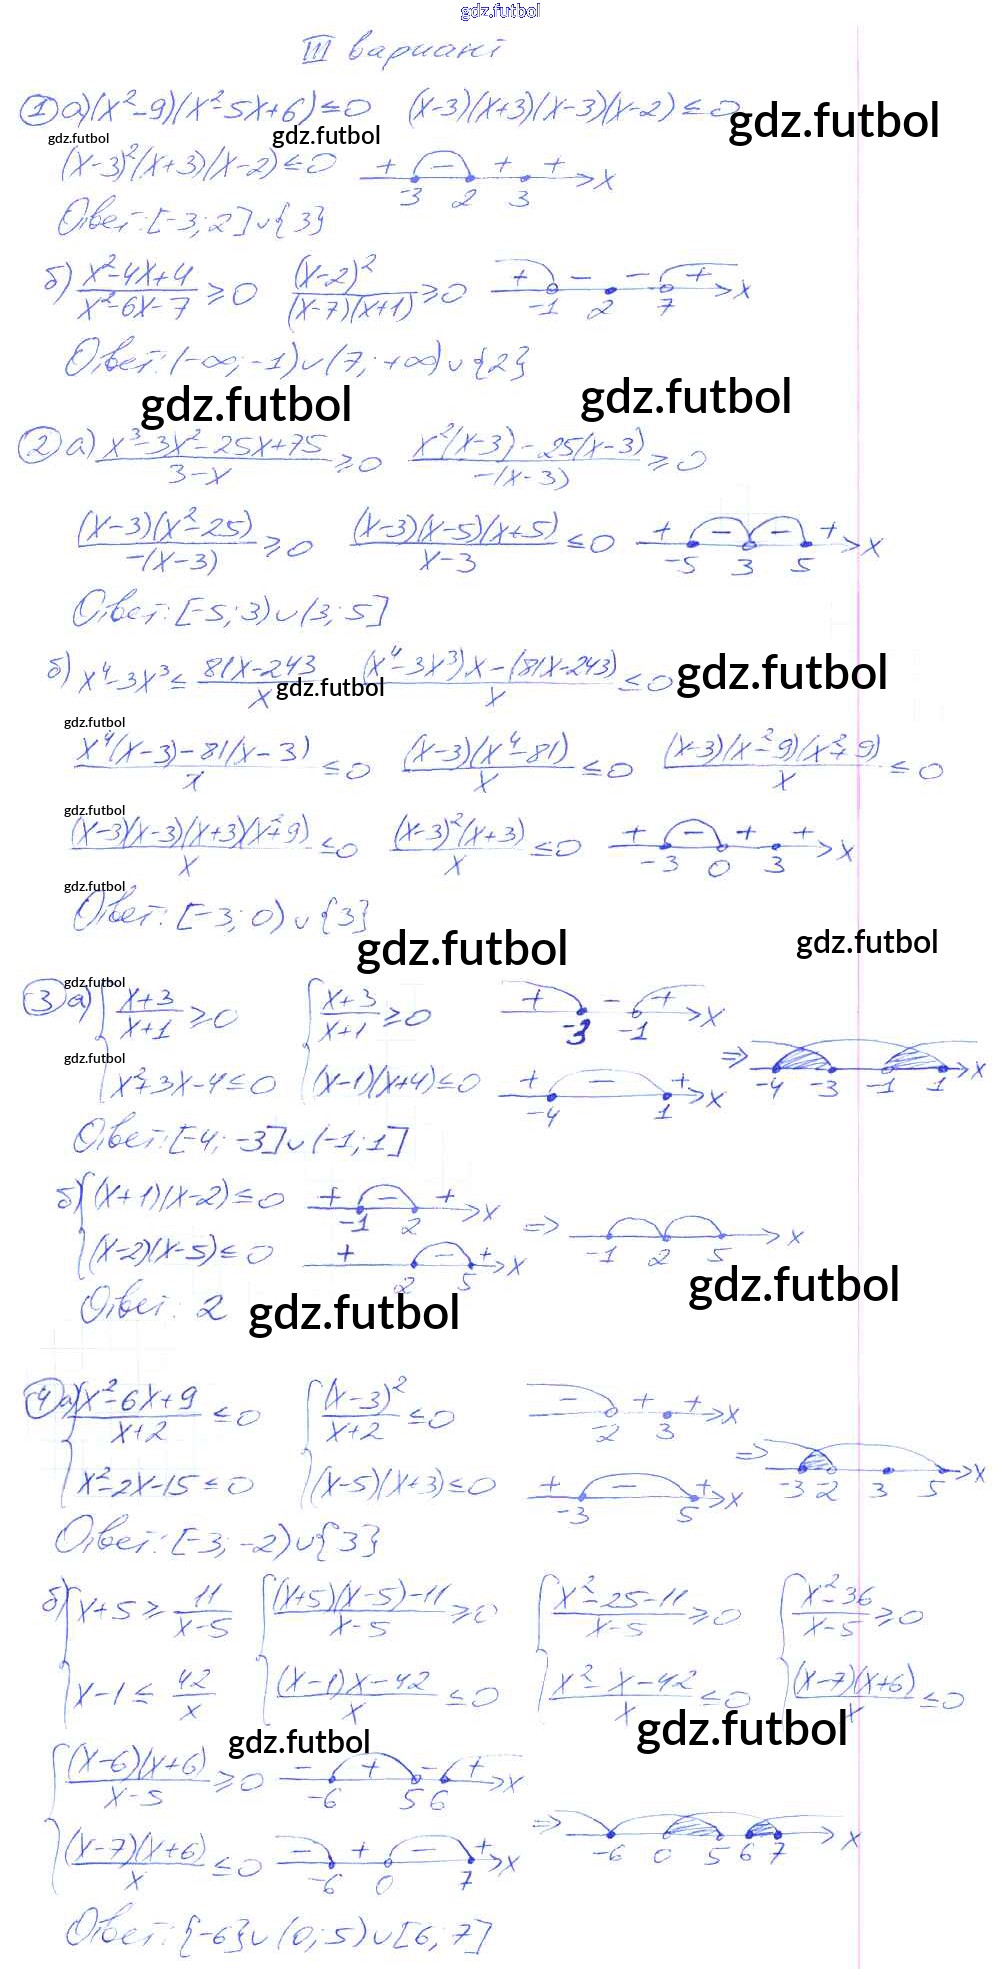 gdz.futbol
III вариант
① а) (x²-9)(x²-5x+6)≤0 (x-3)(x+3)(x-3)(x-2)≤0 gdz.futbol
gdz.futbol gdz.futbol
(x-3)²(x+3)(x-2)≤0 + - + + x
-3 2 3
Ответ: [-3; 2]∪{3}
б) (x²-4x+4)/(x²-6x-7) ≥0 (x-2)²/((x-7)(x+1)) ≥0 + - - + x
-1 2 7
Ответ: (-∞; -1)∪(7; +∞)∪{2}
gdz.futbol gdz.futbol
② а) (x³-3x²-25x+75)/(3-x) ≥0 (x²(x-3)-25(x-3))/(-(x-3)) ≥0
((x-3)(x²-25))/(-(x-3)) ≥0 ((x-3)(x-5)(x+5))/(x-3) ≤0 + - - + x
-5 3 5
Ответ: [-5; 3)∪(3; 5]
б) x⁴-3x³≤ (81x-243)/x ((x⁴-3x³)x-(81x-243))/x ≤0 gdz.futbol
gdz.futbol
gdz.futbol
(x⁴(x-3)-81(x-3))/x ≤0 ((x-3)(x⁴-81))/x ≤0 ((x-3)(x²-9)(x²+9))/x ≤0
gdz.futbol
((x-3)(x-3)(x+3)(x²+9))/x ≤0 ((x-3)²(x+3))/x ≤0 + - + + x
-3 0 3
gdz.futbol
Ответ: [-3; 0)∪{3}
gdz.futbol gdz.futbol
gdz.futbol
③ а) { (x+3)/(x+1) ≥0 { (x+3)/(x+1) ≥0 + - + x
-3 -1
gdz.futbol
x²+3x-4≤0 (x-1)(x+4)≤0 + - + x
-4 1
⇒ -4 -3 -1 1 x
Ответ: [-4; -3]∪(-1; 1]
б) { (x+1)(x-2)≤0 + - + x
-1 2
(x-2)(x-5)≤0 + - + x
2 5
⇒ -1 2 5 x
Ответ: 2
gdz.futbol gdz.futbol
④ а) { (x²-6x+9)/(x+2) ≤0 { (x-3)²/(x+2) ≤0 - + + x
-2 3
x²-2x-15≤0 (x-5)(x+3)≤0 + - + x
-3 5
⇒ -3 -2 3 5 x
Ответ: [-3; -2)∪{3}
б) { x+5≥ 11/(x-5) { ((x+5)(x-5)-11)/(x-5) ≥0 { (x²-25-11)/(x-5) ≥0 { (x²-36)/(x-5) ≥0
x-1≤ 42/x ((x-1)x-42)/x ≤0 (x²-x-42)/x ≤0 ((x-7)(x+6))/x ≤0
gdz.futbol gdz.futbol
{ ((x-6)(x+6))/(x-5) ≥0 - + - + x
-6 5 6
((x-7)(x+6))/x ≤0 - + - + x
-6 0 7
⇒ -6 0 5 6 7 x
Ответ: {-6}∪(0; 5)∪[6; 7]